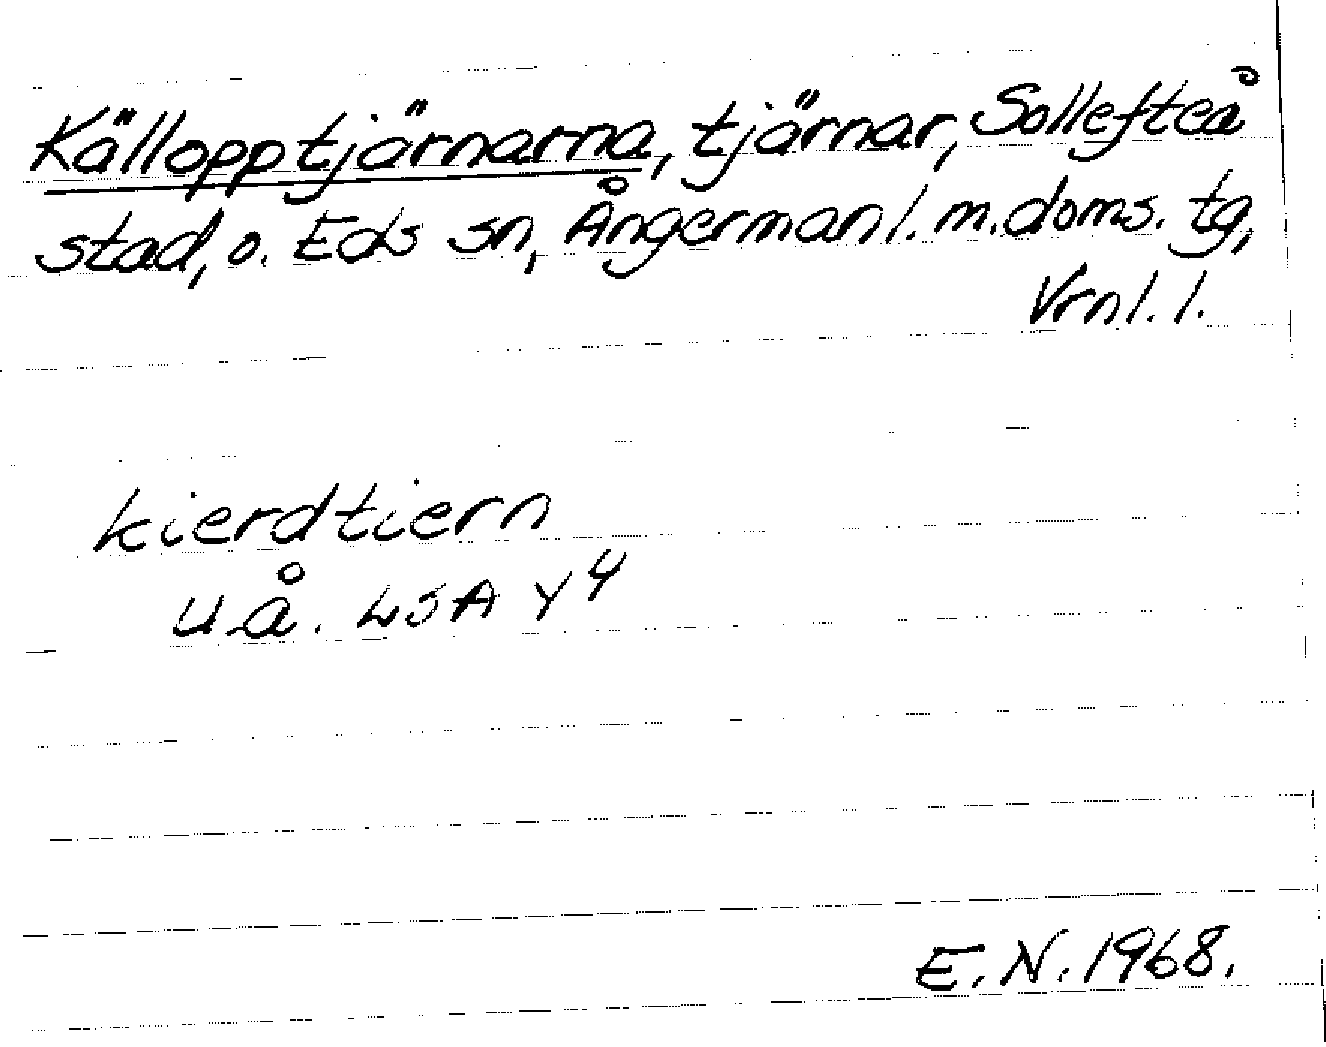 Källopptjärnarna, tjärnar, Sollefteå
stad, o. Eds sn, Ångermanl. m. doms. tg,
Vrnl. l.
kierdtiern
u.å. LSA Y 4
E.N. 1968.